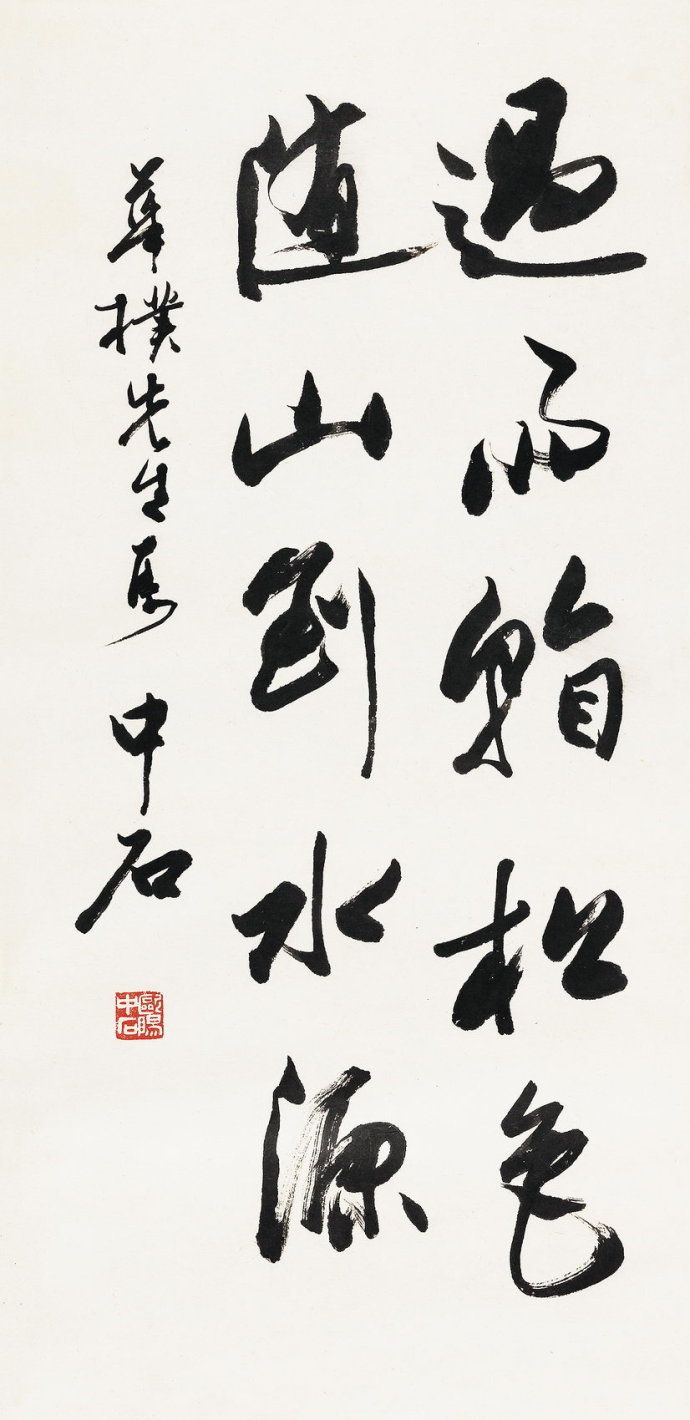 過雨看松色
随山到水源
華樸先生属 中石
歐陽中石